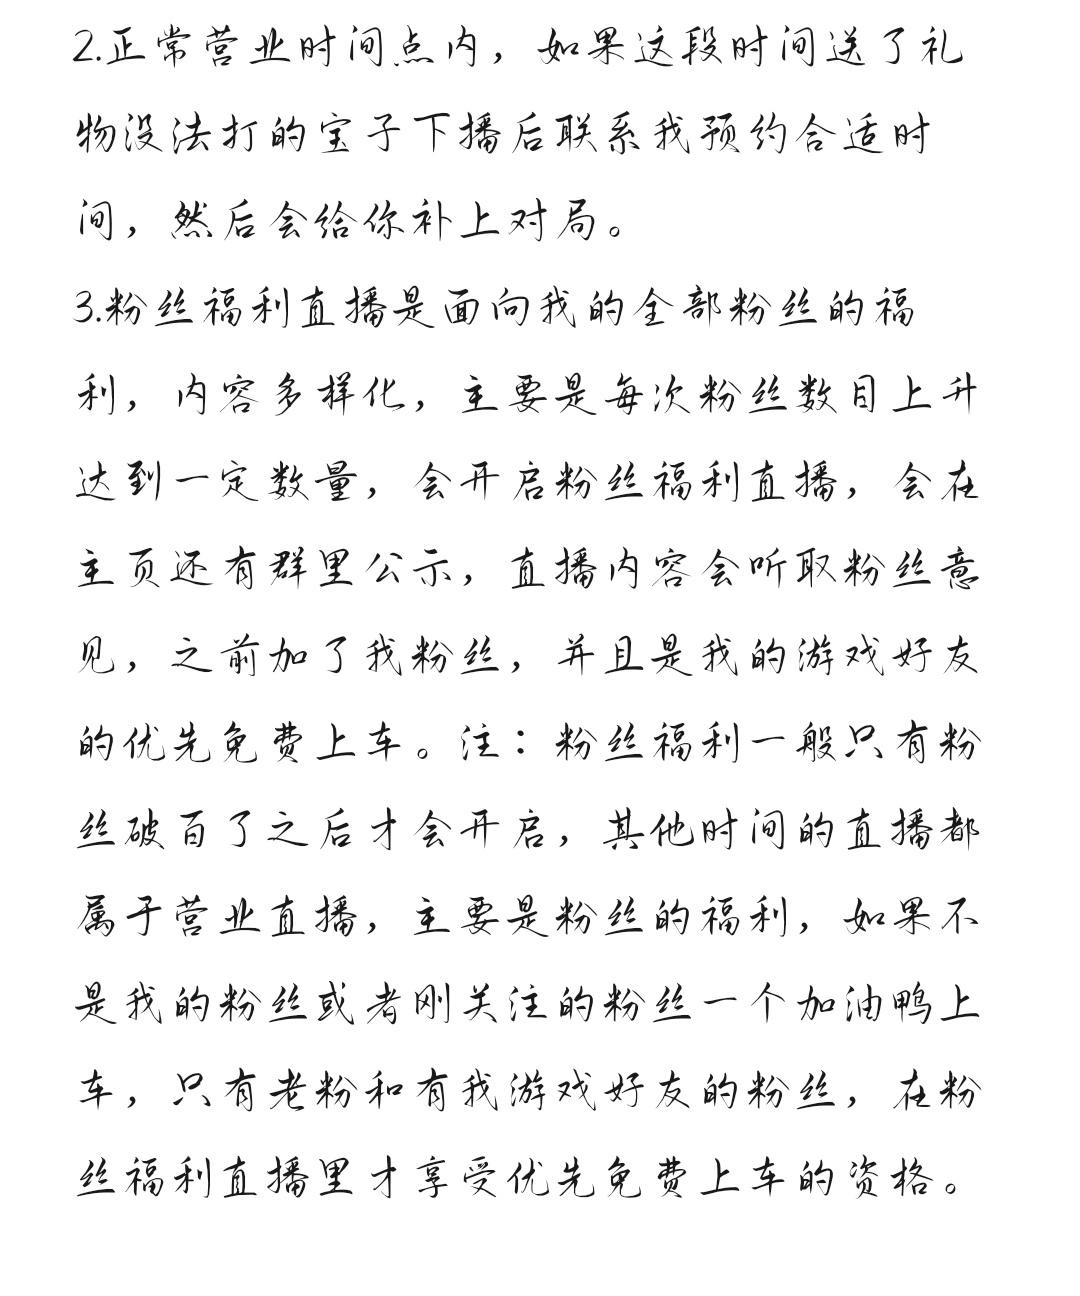 2.正常营业时间点内，如果这段时间送了礼
物没法打的宝子下播后联系我预约合适时
间，然后会给你补上对局。
3.粉丝福利直播是面向我的全部粉丝的福
利，内容多样化，主要是每次粉丝数目上升
达到一定数量，会开启粉丝福利直播，会在
主页还有群里公示，直播内容会听取粉丝意
见，之前加了我粉丝，并且是我的游戏好友
的优先免费上车。注：粉丝福利一般只有粉
丝破百了之后才会开启，其他时间的直播都
属于营业直播，主要是粉丝的福利，如果不
是我的粉丝或者刚关注的粉丝一个加油鸭上
车，只有老粉和有我游戏好友的粉丝，在粉
丝福利直播里才享受优先免费上车的资格。